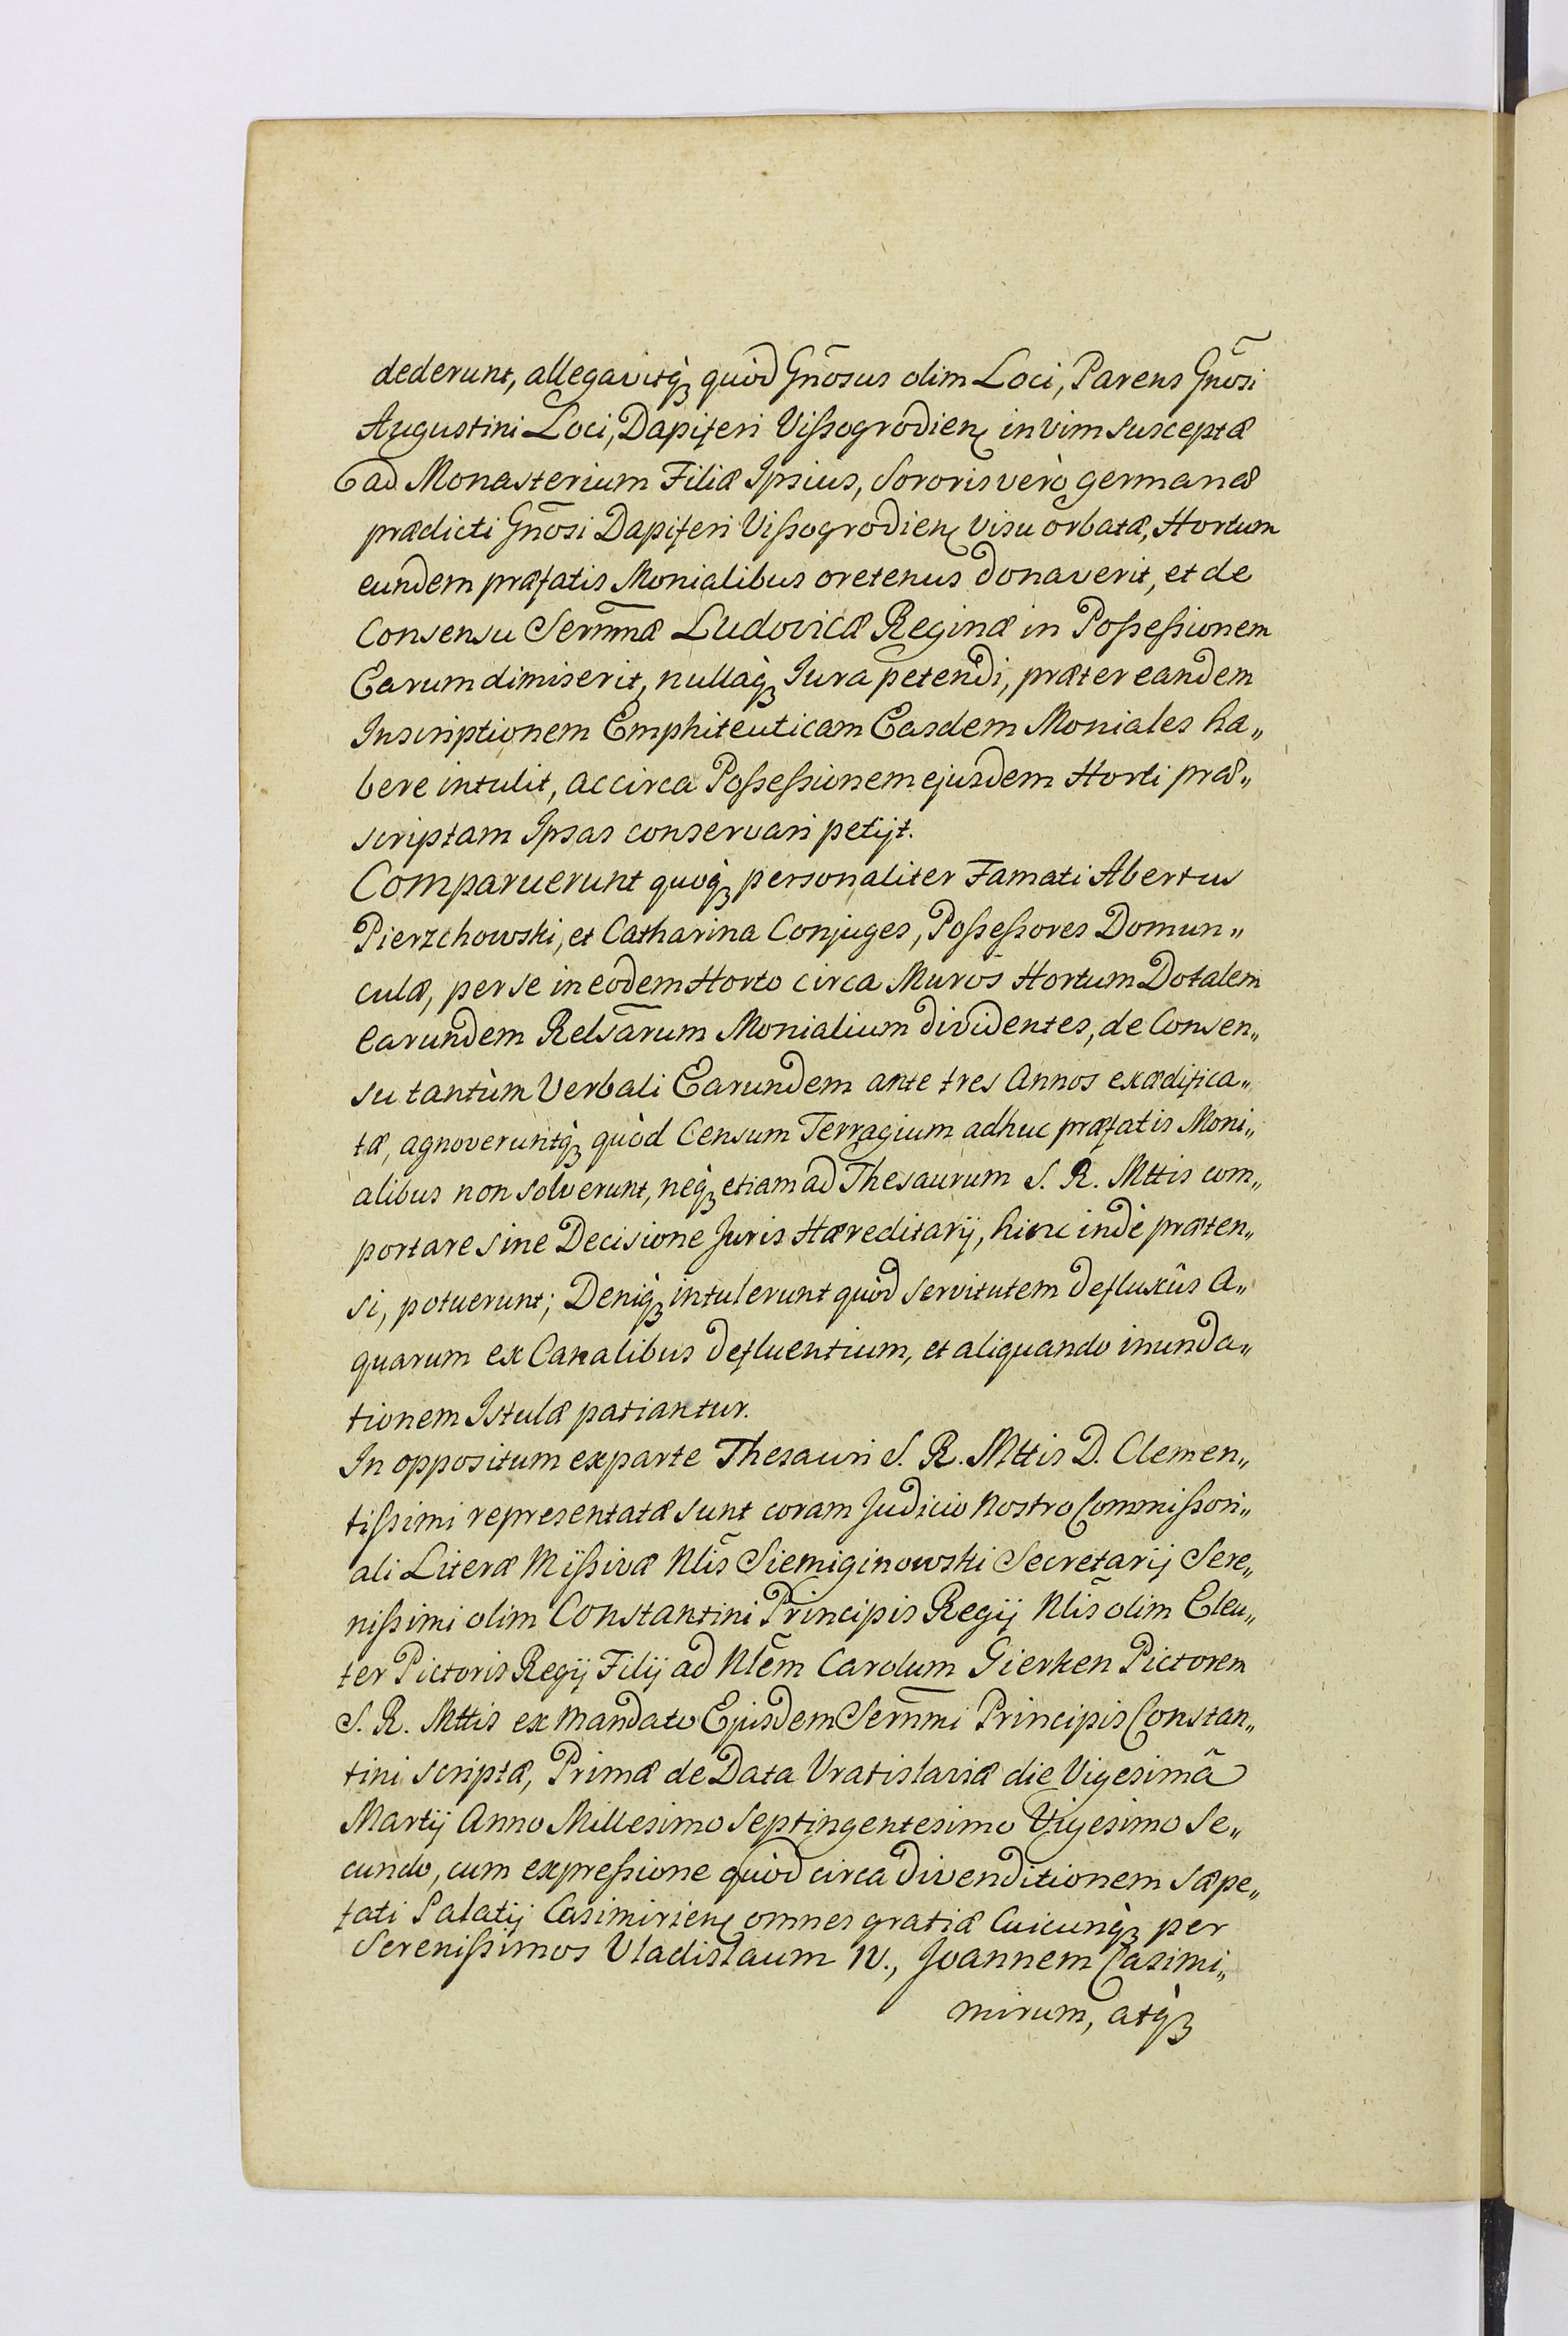 dederunt, allegavitq̀ꝫ quòd Gño̅sus olim Loci, Parens Gño̅si
Augustini Loci, Dapiferi Vißogrodienę in vim susceptæ
ad Monasterium Filiæ Ipsius, Sororis verò germanæ
prædicti Gño̅si Dapiferi Vißogrodienę visu orbatæ, Hortum
eundem præfatis Monialibus oretenus donaverit, et de
Consensu Serm̅næ Ludovicæ Reginæ in Poßeßionem
Earum dimiserit, nullaq̀ꝫ Jura petendi, præter eandem
Inscriptionem Emphiteuticam Easdem Moniales ha„
bere intulit, ac circa Poßeßionem ejusdem Horti præ„
scriptam Ipsas conservari petijt.
Comparuerunt quoq̀ꝫ personaliter Famati Abertus
Pierzchowski, et Catharina Conjuges, Poßeßores Domun„
culæ, per se in eodem Horto circa Muros Hortum Dotalem
earundem Relsa̅rum Monialium dividentes, de Consen„
su tantùm Verbali Earundem ante tres Annos exædifica„
tæ, agnoveruntq̀ꝫ quòd Censum Terragium adhuc præfatis Moni„
alibus non solverunt, neq̀ꝫ etiam ad Thesaurum S. R. Mttis com„
portare sine Decisione Juris Hæreditarij, hinc indè præten„
si, potuerunt; Deniq̀ꝫ intulerunt quòd servitutem defluxûs A„
quarum ex Canalibus defluentium, et aliquando inunda„
tionem Istulæ patiantur.
In oppositum ex parte Thesauri S. R. Mttis D. Clemen„
tißimi representatæ sunt coram Judicio Nostro Commißori„
ali Literæ Mißivæ Nli̅s Siemiginowski Secretarij Sere„
nißimi olim Constantini Principis Regij Nli̅s olim Eleu„
ter Pictoris Regij Filij ad Nle̅m Carolum Gierken Pictorem
S. R. Mttis ex Mandato Ejusdem Serm̅mi Principis Constan„
tini scriptæ, Primæ de Data Vratislaviæ die Vigesimâ
Martij Anno Millesimo Septingentesimo Vigesimo Se„
cundo, cum expreßione quòd circa divenditionem sæpe„
fati Palatij Casimirienę omnes gratiæ Cuicunq̀ꝫ per
Serenißimos Vladislaum IV., Joannem Casimi„
mirum, atq̀ꝫ